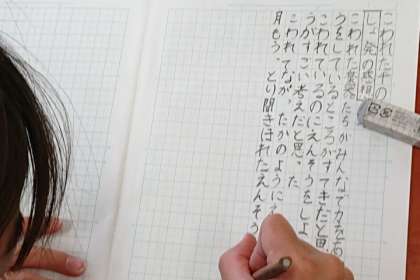 こわれた千の
しょ発の感想
こわれた楽器たちがみんなで力を合
うをしているところがすてきだと思
こわれているのにえんそうをしよ
うがすごい考えだと思った
こわれてなが、たかのように
月もう、とり聞きほれたえんそう